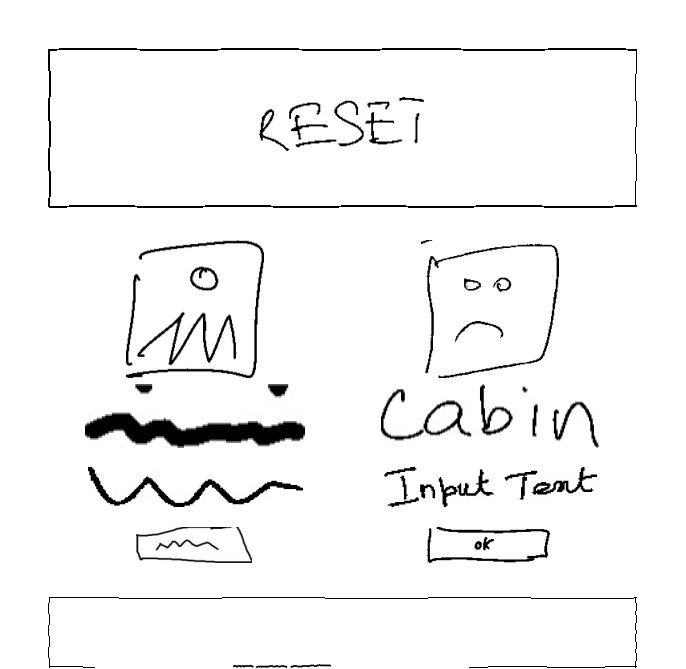 RESET
Cabin
Input Text
OK